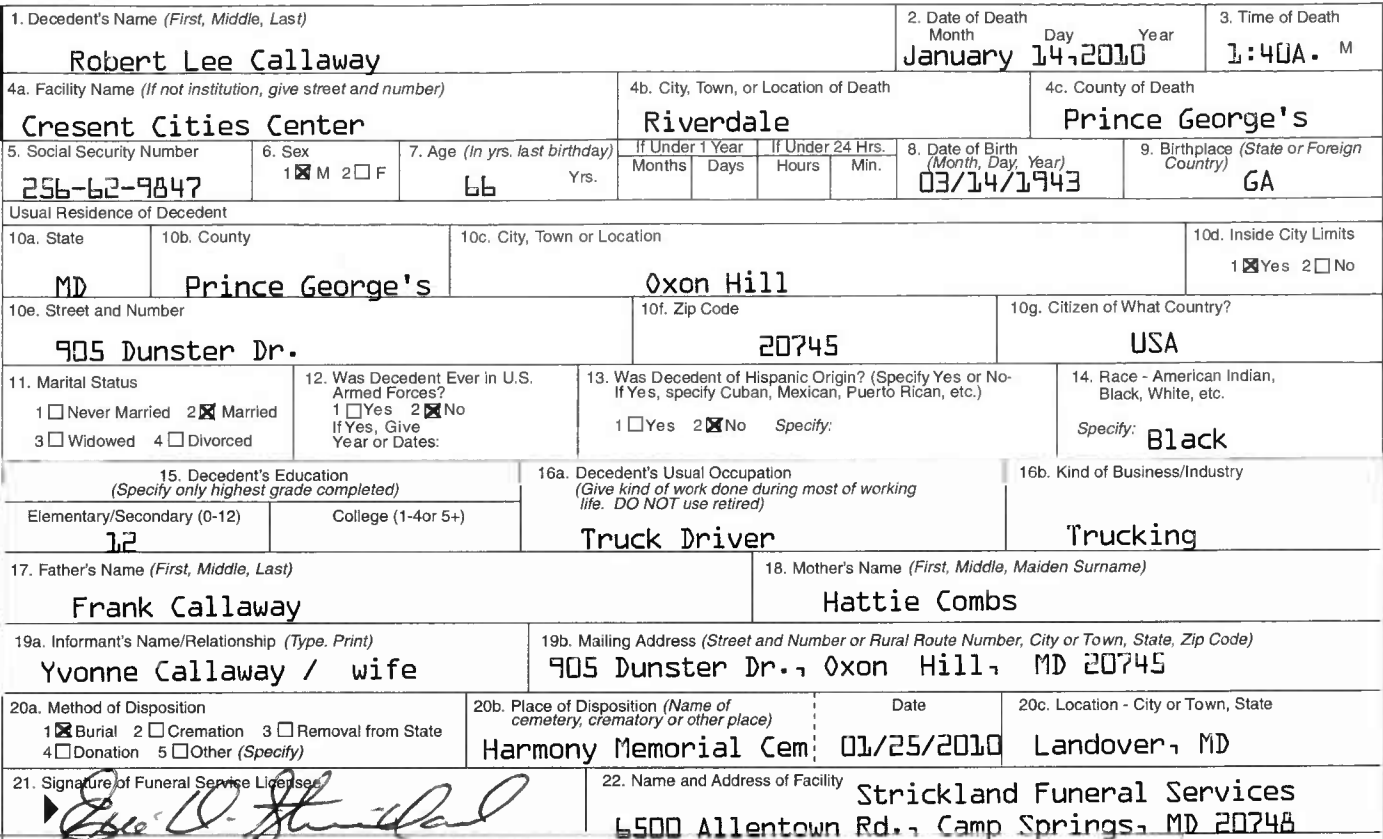 1. Decedent's Name (First, Middle, Last)
Robert Lee Callaway
2. Date of Death
Month Day Year
January 14, 2010
3. Time of Death
1:40A. M
4a. Facility Name (If not institution, give street and number)
Cresent Cities Center
4b. City, Town, or Location of Death
Riverdale
4c. County of Death
Prince George's
5. Social Security Number
256-62-9847
6. Sex
1 ☒ M 2 ☐ F
7. Age (In yrs. last birthday)
66 Yrs.
If Under 1 Year
Months Days
If Under 24 Hrs.
Hours Min.
8. Date of Birth
(Month, Day, Year)
03/14/1943
9. Birthplace (State or Foreign
Country)
GA
Usual Residence of Decedent
10a. State
MD
10b. County
Prince George's
10c. City, Town or Location
Oxon Hill
10d. Inside City Limits
1 ☒ Yes 2 ☐ No
10e. Street and Number
905 Dunster Dr.
10f. Zip Code
20745
10g. Citizen of What Country?
USA
11. Marital Status
1 ☐ Never Married 2 ☒ Married
3 ☐ Widowed 4 ☐ Divorced
12. Was Decedent Ever in U.S.
Armed Forces?
1 ☐ Yes 2 ☒ No
If Yes, Give
Year or Dates:
13. Was Decedent of Hispanic Origin? (Specify Yes or No-
If Yes, specify Cuban, Mexican, Puerto Rican, etc.)
1 ☐ Yes 2 ☒ No Specify:
14. Race - American Indian,
Black, White, etc.
Specify: Black
15. Decedent's Education
(Specify only highest grade completed)
Elementary/Secondary (0-12)
12
College (1-4or 5+)
16a. Decedent's Usual Occupation
(Give kind of work done during most of working
life. DO NOT use retired)
Truck Driver
16b. Kind of Business/Industry
Trucking
17. Father's Name (First, Middle, Last)
Frank Callaway
18. Mother's Name (First, Middle, Maiden Surname)
Hattie Combs
19a. Informant's Name/Relationship (Type. Print)
Yvonne Callaway / wife
19b. Mailing Address (Street and Number or Rural Route Number, City or Town, State, Zip Code)
905 Dunster Dr., Oxon Hill, MD 20745
20a. Method of Disposition
1 ☒ Burial 2 ☐ Cremation 3 ☐ Removal from State
4 ☐ Donation 5 ☐ Other (Specify)
20b. Place of Disposition (Name of
cemetery, crematory or other place)
Harmony Memorial Cem
Date
01/25/2010
20c. Location - City or Town, State
Landover, MD
21. Signature of Funeral Service Licensee
22. Name and Address of Facility
Strickland Funeral Services
6500 Allentown Rd., Camp Springs, MD 20748